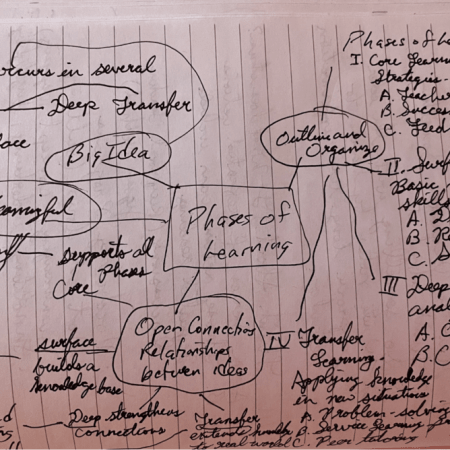 occurs in several
Deep Transfer
Big Idea
supports all
Phases
Core
Phases of
Learning
Outline and
Organize
Open Connections
Relationships
between ideas
surface
builds a
knowledge base
Deep strengthens
connections
Transfer
extends
to real world
Phases of Le
I. Core Learn
Strategies
A. Teacher
B. Success
C. Feed
II. Surf
Basic
skills
A. D
B. R
C. S
III Deep
ana
A. C
B. C
IV Transfer
Learning -
Applying knowledge
in new situations
A. Problem-solving
B. Service learning
C. Peer tutoring